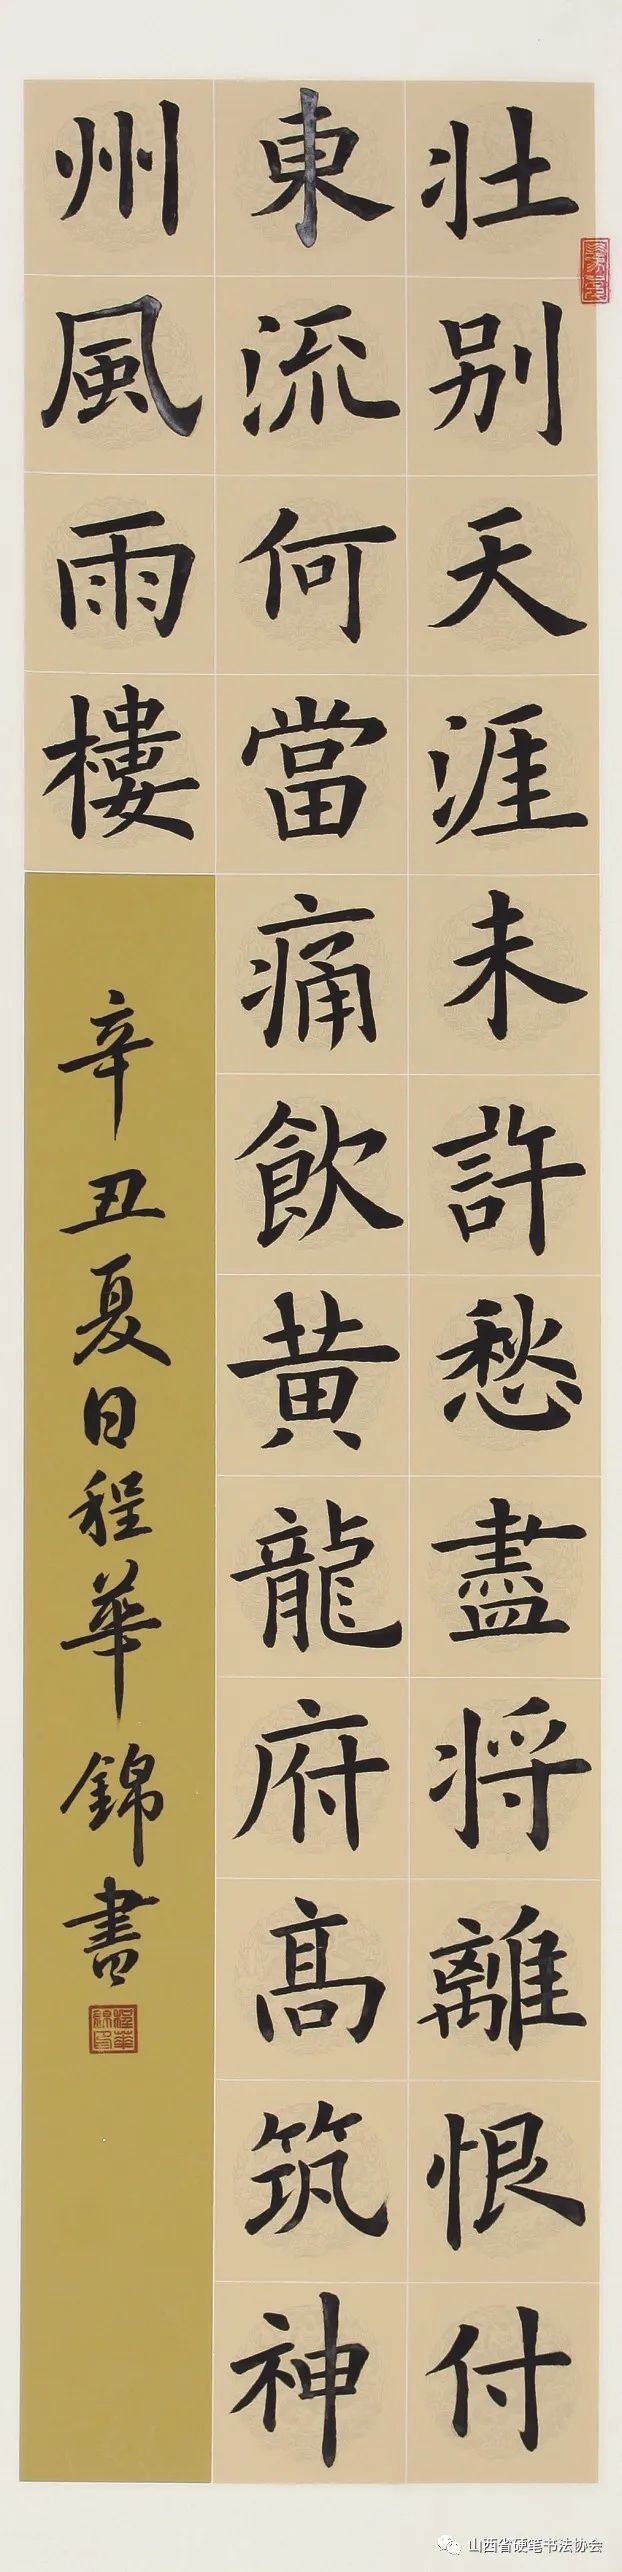 壮别天涯未許愁盡将離恨付
東流何當痛飲黄龍府高筑神
州風雨樓
辛丑夏日程華錦書
山西省硬笔书法协会